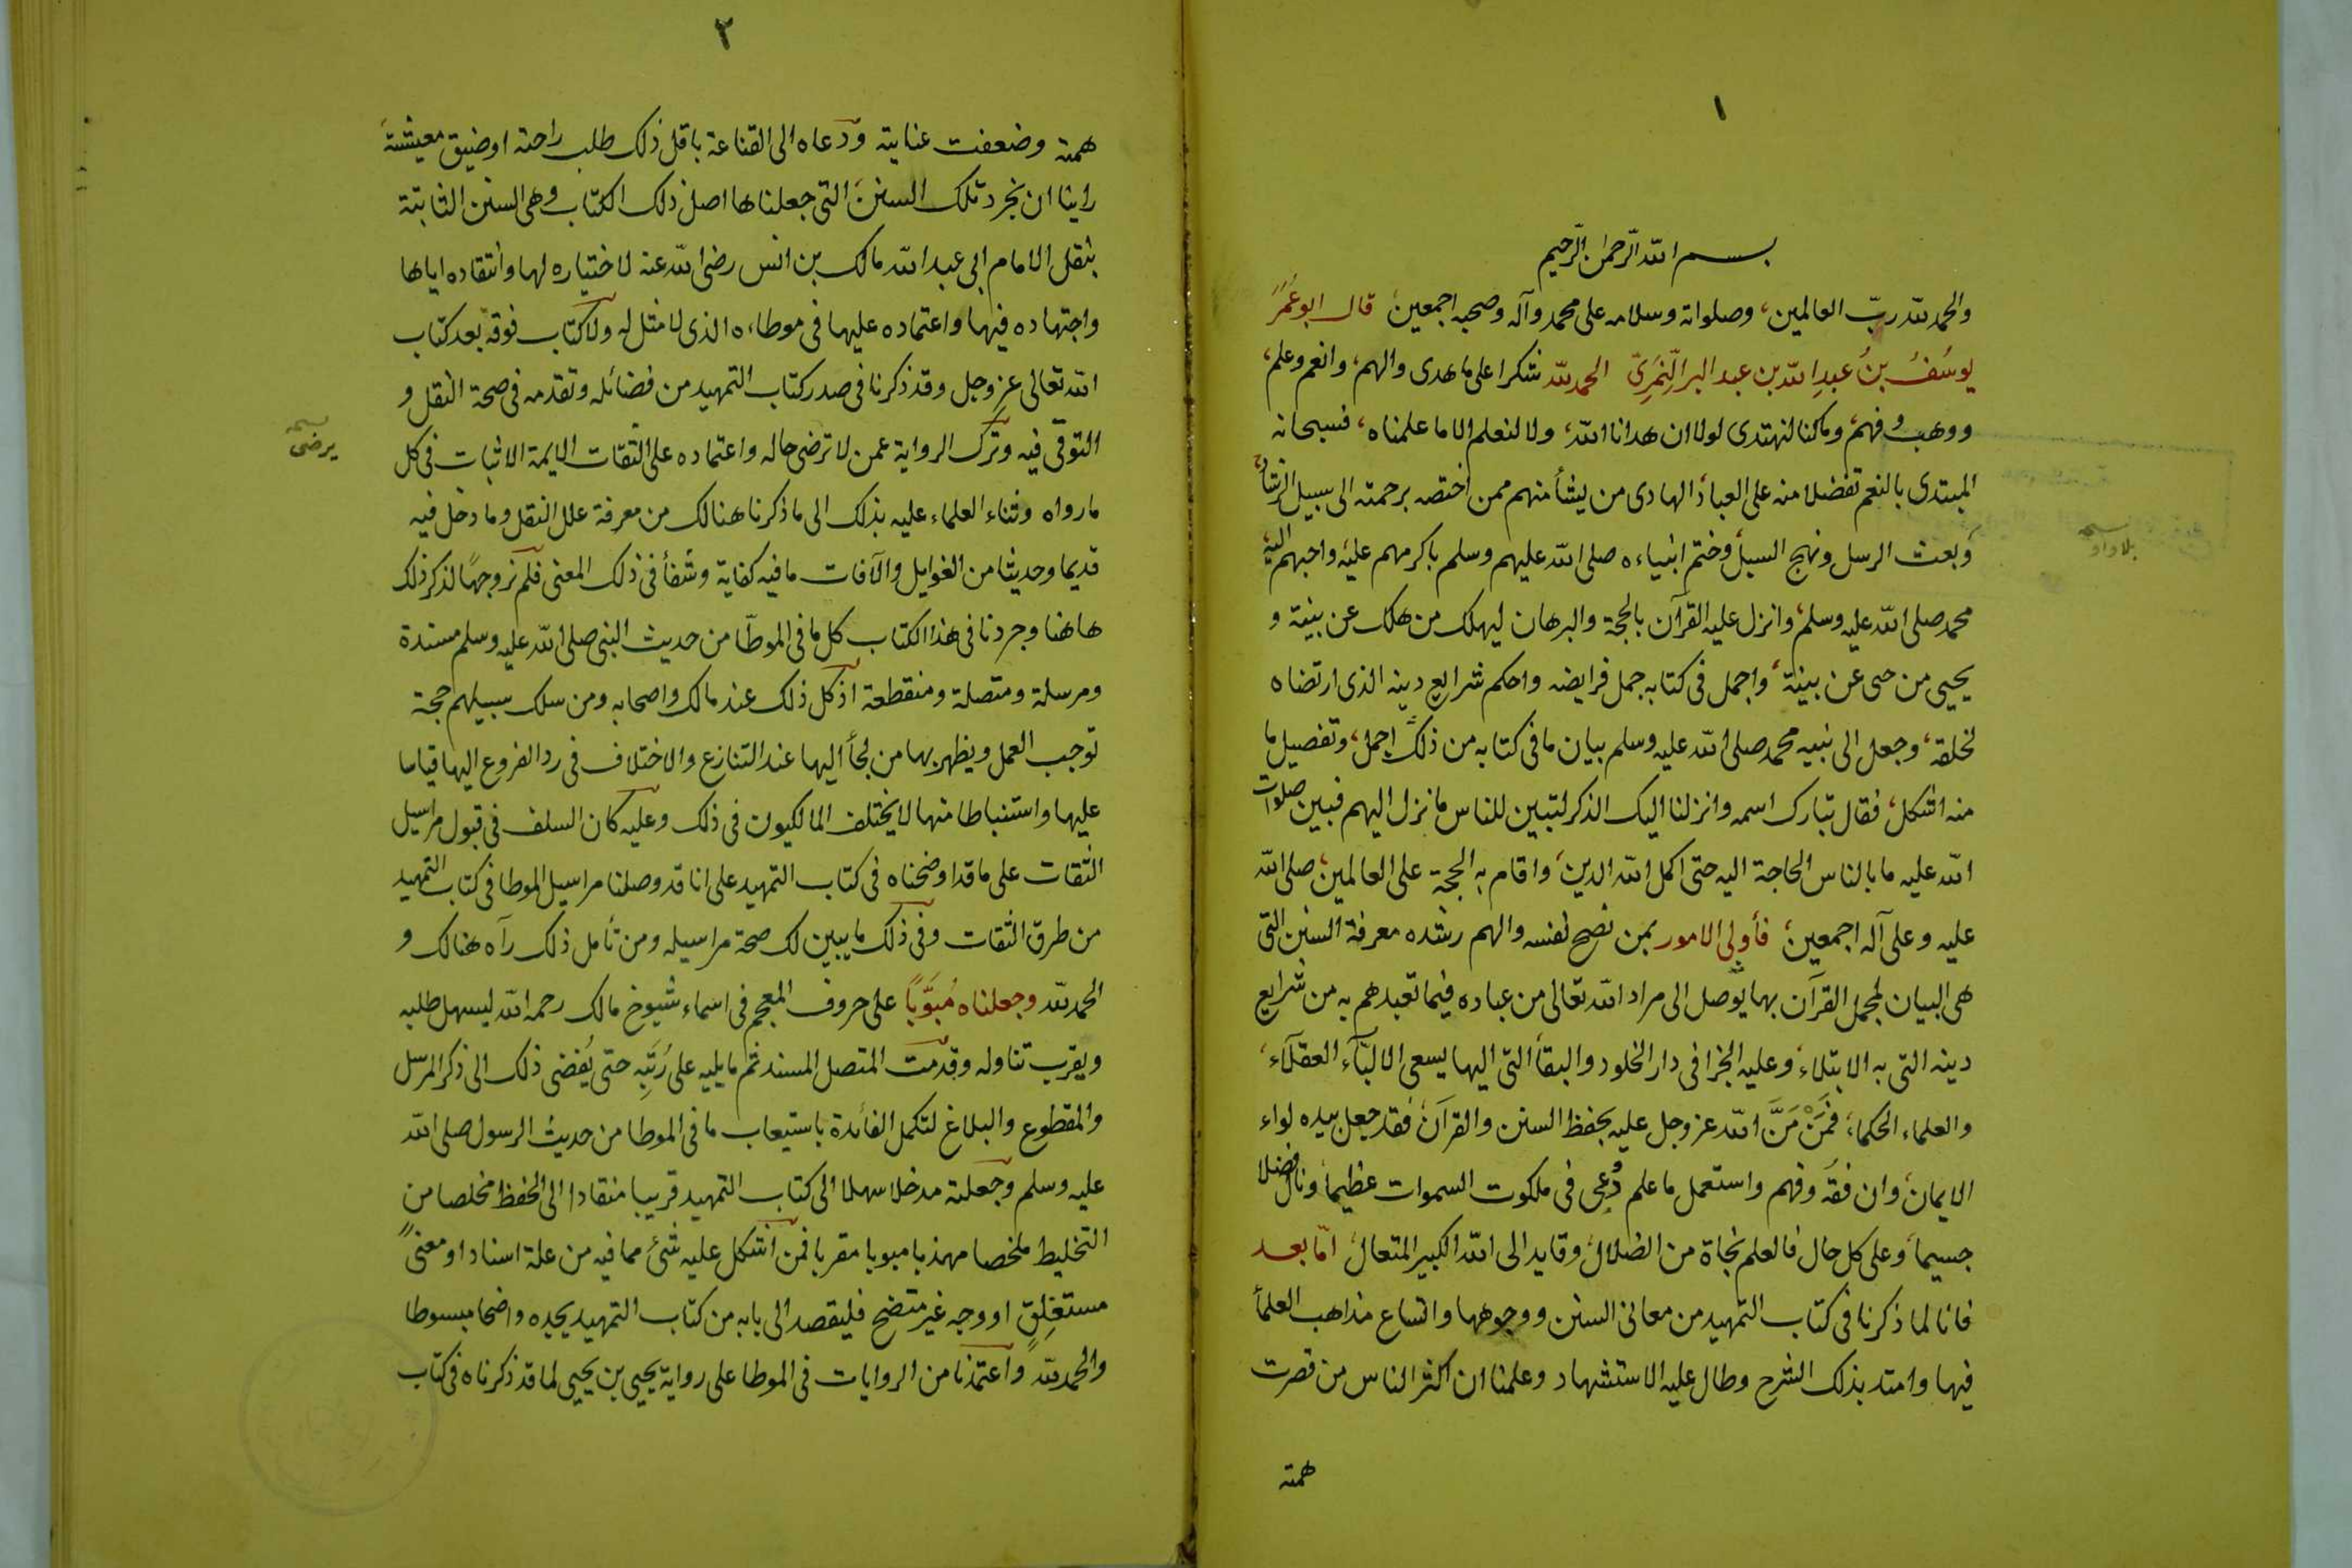 ١
بسم الله الرّحمن الرّحيم
والحمد لله ربّ العالمين، وصلواته وسلامه على محمد وآله وصحبه اجمعين، قال ابو عُمَرَ
يوسُفُ بنُ عبدِ الله بن عبد البر النَّمَرِيّ الحمد لله شكرا على ما هدى والهم، وانعم وعلم،
ووهب وفهم، وما كنا لنهتدى لولا ان هدانا الله، ولا لنعلم الا ما علمناه، فسبحانه
المبتدى بالنعم تفضلا منه على العباد، الهادى من يشأ منهم ممن اختصه برحمته الى سبيل الرشاد،
وبعث الرسل ونهج السبل، وختم انبياءه صلى الله عليهم وسلم باكرمهم عليه، واحبهم اليه،
محمد صلى الله عليه وسلم، وانزل عليه القرآن بالحجة والبرهان ليهلك من هلك عن بينة و
يحيى من حى عن بينة، واجمل فى كتابه جمل فرايضه واحكم شرايع دينه الذى ارتضاه
لخلقه، وجعل الى نبيه محمد صلى الله عليه وسلم بيان ما فى كتابه من ذلك اجمل، وتفصيل ما
منه اشكل، فقال تبارك اسمه وانزلنا اليك الذكر لتبين للناس ما نزل اليهم فبين صلوات
الله عليه ما بالناس الحاجة اليه حتى اكمل الله الدين، واقام به الحجة على العالمين، صلى الله
عليه وعلى آله اجمعين، فأولى الامور بمن نصح لنفسه والهم رشده معرفة السنن التى
هى البيان لمجمل القرآن بها يوصل الى مراد الله تعالى من عباده فيما تعبدهم به من شرايع
دينه التى به الابتلاء، وعليه الجزا فى دار الخلود والبقأ التى اليها يسعى الالبّآء العقلآء،
والعلماء الحكماء، فمَنْ مَنَّ الله عز وجل عليه بحفظ السنن والقرآن، فقد جعل بيده لواء
الايمان، وان فقُه وفهم واستعمل ما علم دُعِى فى ملكوت السموات عظيما، ونال فضلا
جسيما، وعلى كل حال فالعلم نجاة من الضلال، وقايد الى الله الكبير المتعال، امّا بعد
فانا لما ذكرنا فى كتاب التمهيد من معانى السنن ووجوهها واتساع مذاهب العلمأ
فيها وامتد بذلك الشرح وطال عليه الاستشهاد وعلمنا ان اكثر الناس من قصرت
همته
بلا واو
٢
همته وضعفت عنايته ودعاه الى القناعة باقل ذلك طلب راحته او ضيق معيشته
راينا ان نجرد تلك السنن التى جعلناها اصل ذلك الكتاب وهى السنن الثابتة
بنقل الامام ابى عبد الله مالك بن انس رضى الله عنه لاختياره لها وانتقاده اياها
واجتهاده فيها واعتماده عليها فى موطاءه الذى لا مثل له ولا كتاب فوقه بعد كتاب
الله تعالى عز وجل وقد ذكرنا فى صدر كتاب التمهيد من فضائله وتقدمه فى صحة النقل و
التوقى فيه وترك الرواية عمن لا ترضى حاله واعتماده على الثقات الايمة الاثبات فى كل
ما رواه وثناء العلماء عليه بذلك الى ما ذكرنا هنالك من معرفة علل النقل وما دخل فيه
قديما وحديثا من الغوايل والآفات ما فيه كفاية وشفأ فى ذلك المعنى فلم نر وجهًا لذكر ذلك
هاهنا وجردنا فى هذا الكتاب كل ما فى الموطّا من حديث النبى صلى الله عليه وسلم مسندة
ومرسلة ومتصلة ومنقطعة اذ كل ذلك عند مالك واصحابه ومن سلك سبيلهم حجة
توجب العمل ويظهر بها من لجأ اليها عند التنازع والاختلاف فى رد الفروع اليها قياسا
عليها واستنباطا منها لا يختلف المالكيون فى ذلك وعليه كان السلف فى قبول مراسيل
الثقات على ما قد اوضحناه فى كتاب التمهيد على انا قد وصلنا مراسيل الموطا فى كتاب التمهيد
من طرق الثقات وفى ذلك ما يبين لك صحة مراسيله ومن تأمل ذلك رآه هنالك و
الحمد لله وجعلناه مُبَوَّبًا على حروف المعجم فى اسماء شيوخ مالك رحمه الله ليسهل طلبه
ويقرب تناوله وقدمت المتصل المسند ثم ما يليه على رُتَبِه حتى يُفضى ذلك الى ذكر المرسل
والمقطوع والبلاغ لتكمل الفأئدة باستيعاب ما فى الموطا من حديث الرسول صلى الله
عليه وسلم وجعلته مدخلا سهلا الى كتاب التمهيد قريبا منقادا الى الحفظ مخلصا من
التخليط ملخصا مهذبا مبوبا مقربا فمن اشكل عليه شئ مما فيه من علة اسناد او معنىً
مستغلِقٍ او وجه غير متضح فليقصد الى بابه من كتاب التمهيد يجده واضحا مبسوطا
والحمد لله واعتمدنا من الروايات فى الموطا على رواية يحيى بن يحيى لما قد ذكرناه فى كتاب
يرضى